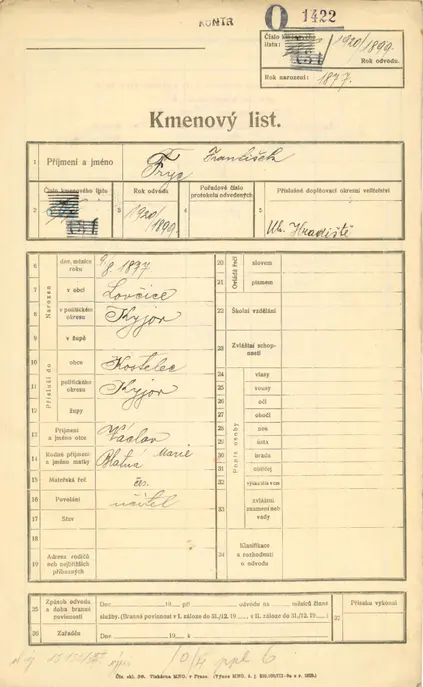 KONTR
O 1422
Číslo
listu:
1920/1899
Rok odvodu.
Rok narození: 1877.
Kmenový list.
1 Příjmení a jméno Fryc František
Číslo kmenového listu Rok odvodu Pořadové číslo protokolu odvedených Příslušné doplňovací okresní velitelství
2 3 1920/1899 4 5 Uh. Hradiště
Narozen
6 den, měsíc roku 9/8 1877
7 v obci Lovčice
8 v politického okresu Kyjov
9 v župě
Přísluší do
10 obce Kostelec
11 politického okresu Kyjov
12 župy
13 Příjmení a jméno otce Václav
14 Rodné příjmení a jméno matky Blatná Marie
15 Mateřská řeč čes.
16 Povolání učitel
17 Stav
18
19 Adresa rodičů neb nejbližších příbuzných
Ovládá řeči
20 slovem
21 písmem
22 Školní vzdělání
23 Zvláštní schopnosti
Popis osoby
24 vlasy
25 vousy
26 oči
27 obočí
28 nos
29 ústa
30 brada
31 obličej
32
33 zvláštní znamení neb vady
34 Klasifikace a rozhodnutí o odvodu
35 Způsob odvodu a doba branné povinnosti Dne 19 při odvodu na měsíců činné
služby. (Branná povinnost v I. záloze do 31./12. 19 v II. záloze do 31./12. 19 )
36 Zařaděn Dne 19 k
37 Přísahu vykonal
Čís. skl. Tiskárna MNO. v Praze.